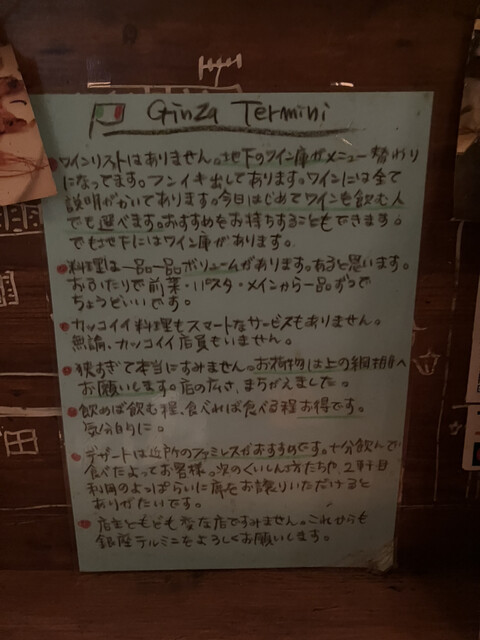 Ginza Termini
ワインリストはありません。地下のワイン庫がメニュー替わり
になってます。フンイキ出してあります。ワインには全て
説明がかいてあります。今日はじめてワインを飲む人
でも選べます。おすすめをお持ちすることもできます。
でも地下にはワイン庫があります。
料理は一品一品ボリュームがあります。あると思います。
おふたりで前菜・パスタ・メインから一品ずつで
ちょうどいいです。
カッコイイ料理もスマートなサービスもありません。
無論、カッコイイ店員もいません。
狭すぎて本当にすみません。お荷物は上の網棚へ
お願いします。店の広さ、まちがえました。
飲めば飲む程、食べれば食べる程お得です。
気分的に。
デザートは近所のファミレスがおすすめです。十分飲んで
食べたよってお客様。次のくいしん坊たちや、2軒目
利用のよっぱらいに席をお譲りいただけると
ありがたいです。
店主ともども変な店ですみません。これからも
銀座テルミニをよろしくお願いします。